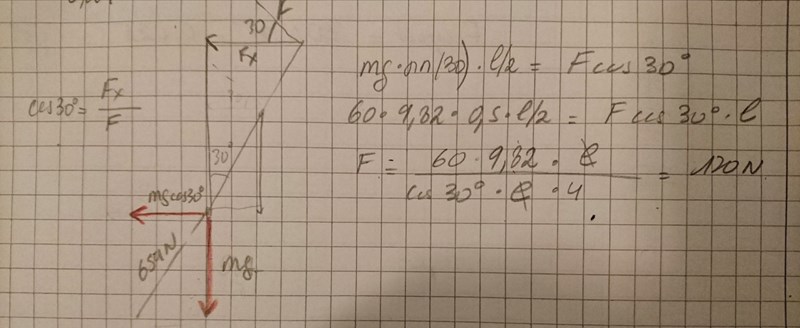 30 F
Fx
cos30°= Fx/F
30°
mg cos30°
mg
659N
mg·sin(30)·l/2 = Fcos30°
60·9,82·0,5·l/2 = Fcos30°·l
F = 60·9,82·l / cos30°·l·4 = 170N